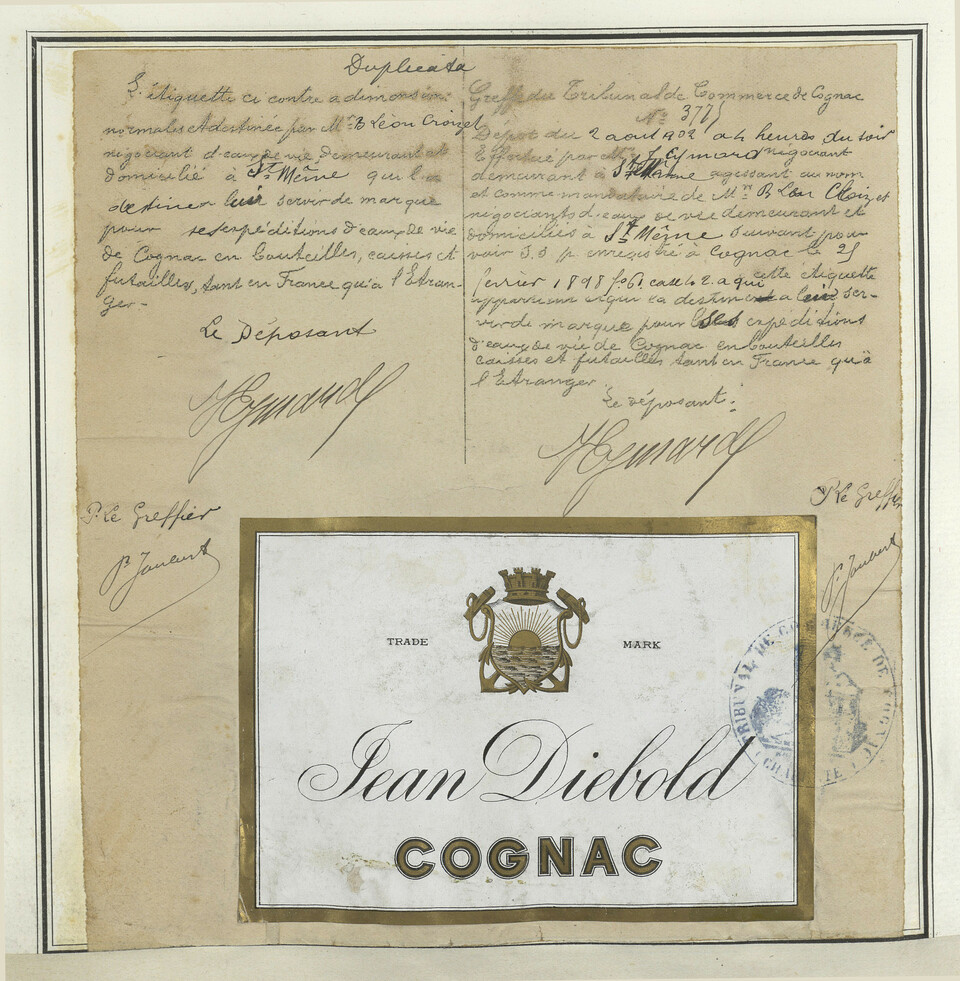 Duplicata
L'étiquette ci contre a dimensions
normales et destinée par Mr B Léon Croizet
négociant d'eaux de vie demeurant et
domicilié à St Même qui l'a
destinée lui servir de marque
pour ses expéditions d'eaux de vie
de Cognac en bouteilles, caisses et
futailles, tant en France qu'a l'Etran-
ger-
Le Déposant
Hymard
P. Le Greffier
Greffe du Tribunal de Commerce de Cognac
No 3775
Dépôt du 2 aout 1902 a 4 heures du soir
Effectué par Mr Eymard négociant
demeurant à St Même agissant au nom
et comme mandataire de Mr B Léon Croizet
négociants d'eaux de vie demeurant et
domiciliés à St Même suivant pou-
voir S.S.p enregistré à Cognac le 25
février 1898 fo 61 case 2 a qui cette étiquette
appartient et qui la destine a lui ser-
vir de marque pour ses expéditions
d'eaux de vie de Cognac en bouteilles
caisses et futailles tant en France qu'à
l'Etranger
Le déposant:
Hymard
P. Le Greffier
TRADE MARK
Jean Diebold
COGNAC
TRIBUNAL DE COMMERCE DE COGNAC
CHARENTE